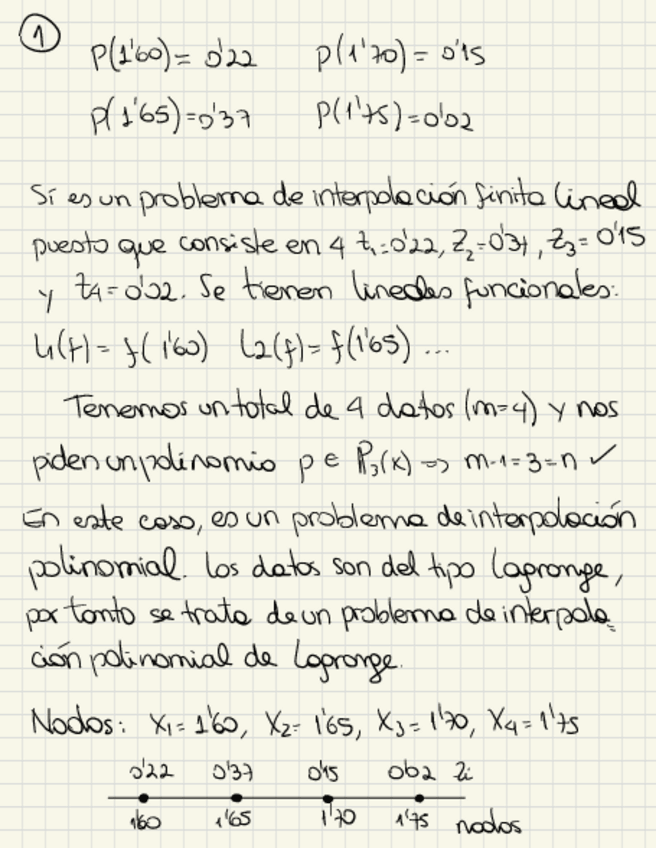 1
P(1'60)= 0'22 P(1'70)= 0'15
P(1'65)=0'37 P(1'75)=0'02
Sí es un problema de interpolación finita lineal
puesto que consiste en 4 z₁=0'22, z₂=0'37, z₃= 0'15
y z₄=0'02. Se tienen lineales funcionales:
L₁(f)= f(1'60) L₂(f)= f(1'65) ...
Tenemos un total de 4 datos (m=4) y nos
piden un polinomio p ∈ P₃(x) => m-1=3=n ✓
En este caso, es un problema de interpolación
polinomial. Los datos son del tipo Lagrange,
por tanto se trata de un problema de interpola
ción polinomial de Lagrange.
Nodos: X₁= 1'60, X₂= 1'65, X₃= 1'70, X₄= 1'75
0'22 0'37 0'15 0'02 Zi
1'60 1'65 1'70 1'75 nodos